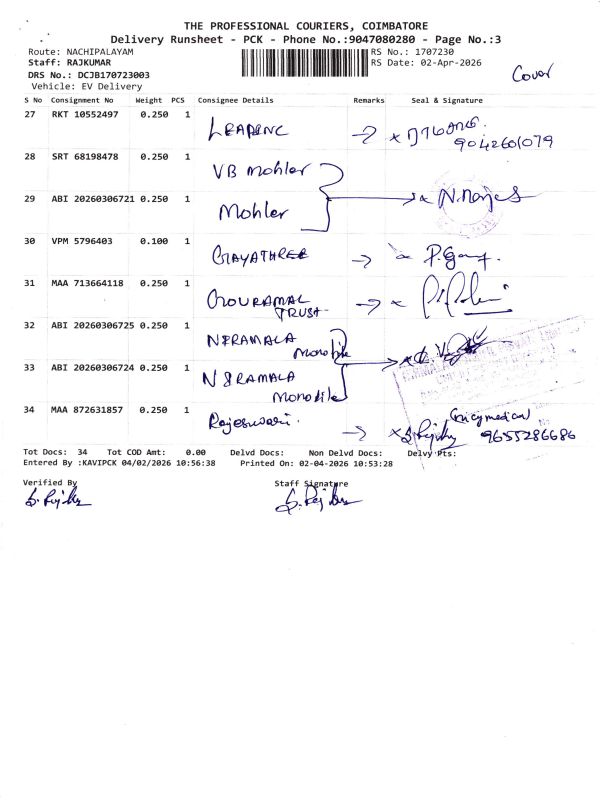 THE PROFESSIONAL COURIERS, COIMBATORE
Delivery Runsheet - PCK - Phone No.:9047080280 - Page No.:3
Route: NACHIPALAYAM RS No.: 1707230
Staff: RAJKUMAR RS Date: 02-Apr-2026
DRS No.: DCJB170723003 Cover
Vehicle: EV Delivery
S No Consignment No Weight PCS Consignee Details Remarks Seal & Signature
27 RKT 10552497 0.250 1
9042601079
28 SRT 68198478 0.250 1 VB Mohler
29 ABI 20260306721 0.250 1 Mohler
30 VPM 5796403 0.100 1 GAYATHREE
31 MAA 713664118 0.250 1 GOURAMAL
TRUST
32 ABI 20260306725 0.250 1 NIRAMALA
Monotile
33 ABI 20260306724 0.250 1 NIRAMALA
Monotile
34 MAA 872631857 0.250 1 Rajeswari.
9655286686
Tot Docs: 34 Tot COD Amt: 0.00 Delvd Docs: Non Delvd Docs: Delvy Pts:
Entered By :KAVIPCK 04/02/2026 10:56:38 Printed On: 02-04-2026 10:53:28
Verified By Staff Signature